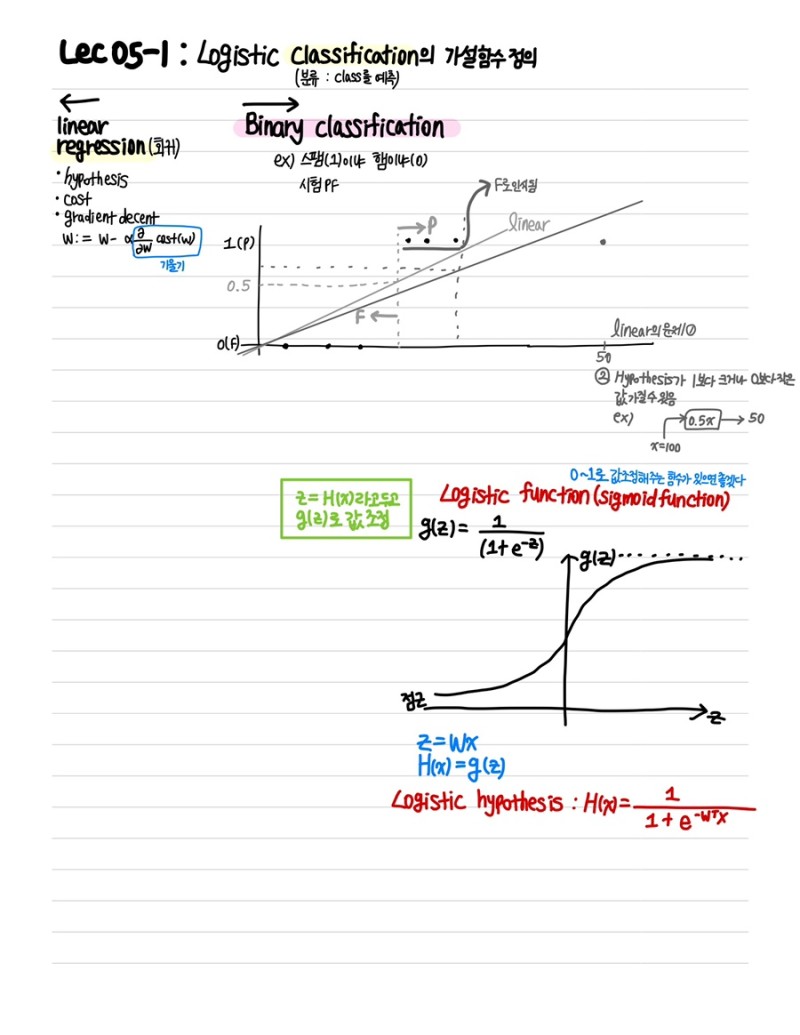 Lec 05-1 : Logistic Classification의 가설함수 정의
(분류 : class를 예측)
linear
regression(회귀)
· hypothesis
· cost
· gradient decent
W := W - α ∂/∂W cost(w)
기울기
Binary classification
ex) 스팸(1)이냐 햄이냐(0)
시험 PF
F로 인식됨
linear
P
1(P)
0.5
F
0(F)
50
linear의 문제/①
② Hypothesis가 1보다 크거나 0보다 작은
값 가질 수 있음
ex)
0.5x
50
x=100
0~1로 값 조정해주는 함수가 있으면 좋겠다
Logistic function(sigmoid function)
z = H(x)라고 두고
g(z)로 값 조정
g(z) = 1/(1+e^-z)
g(z)
점근
z
z = Wx
H(x) = g(z)
Logistic hypothesis : H(x) = 1/1+e^-WᵀX